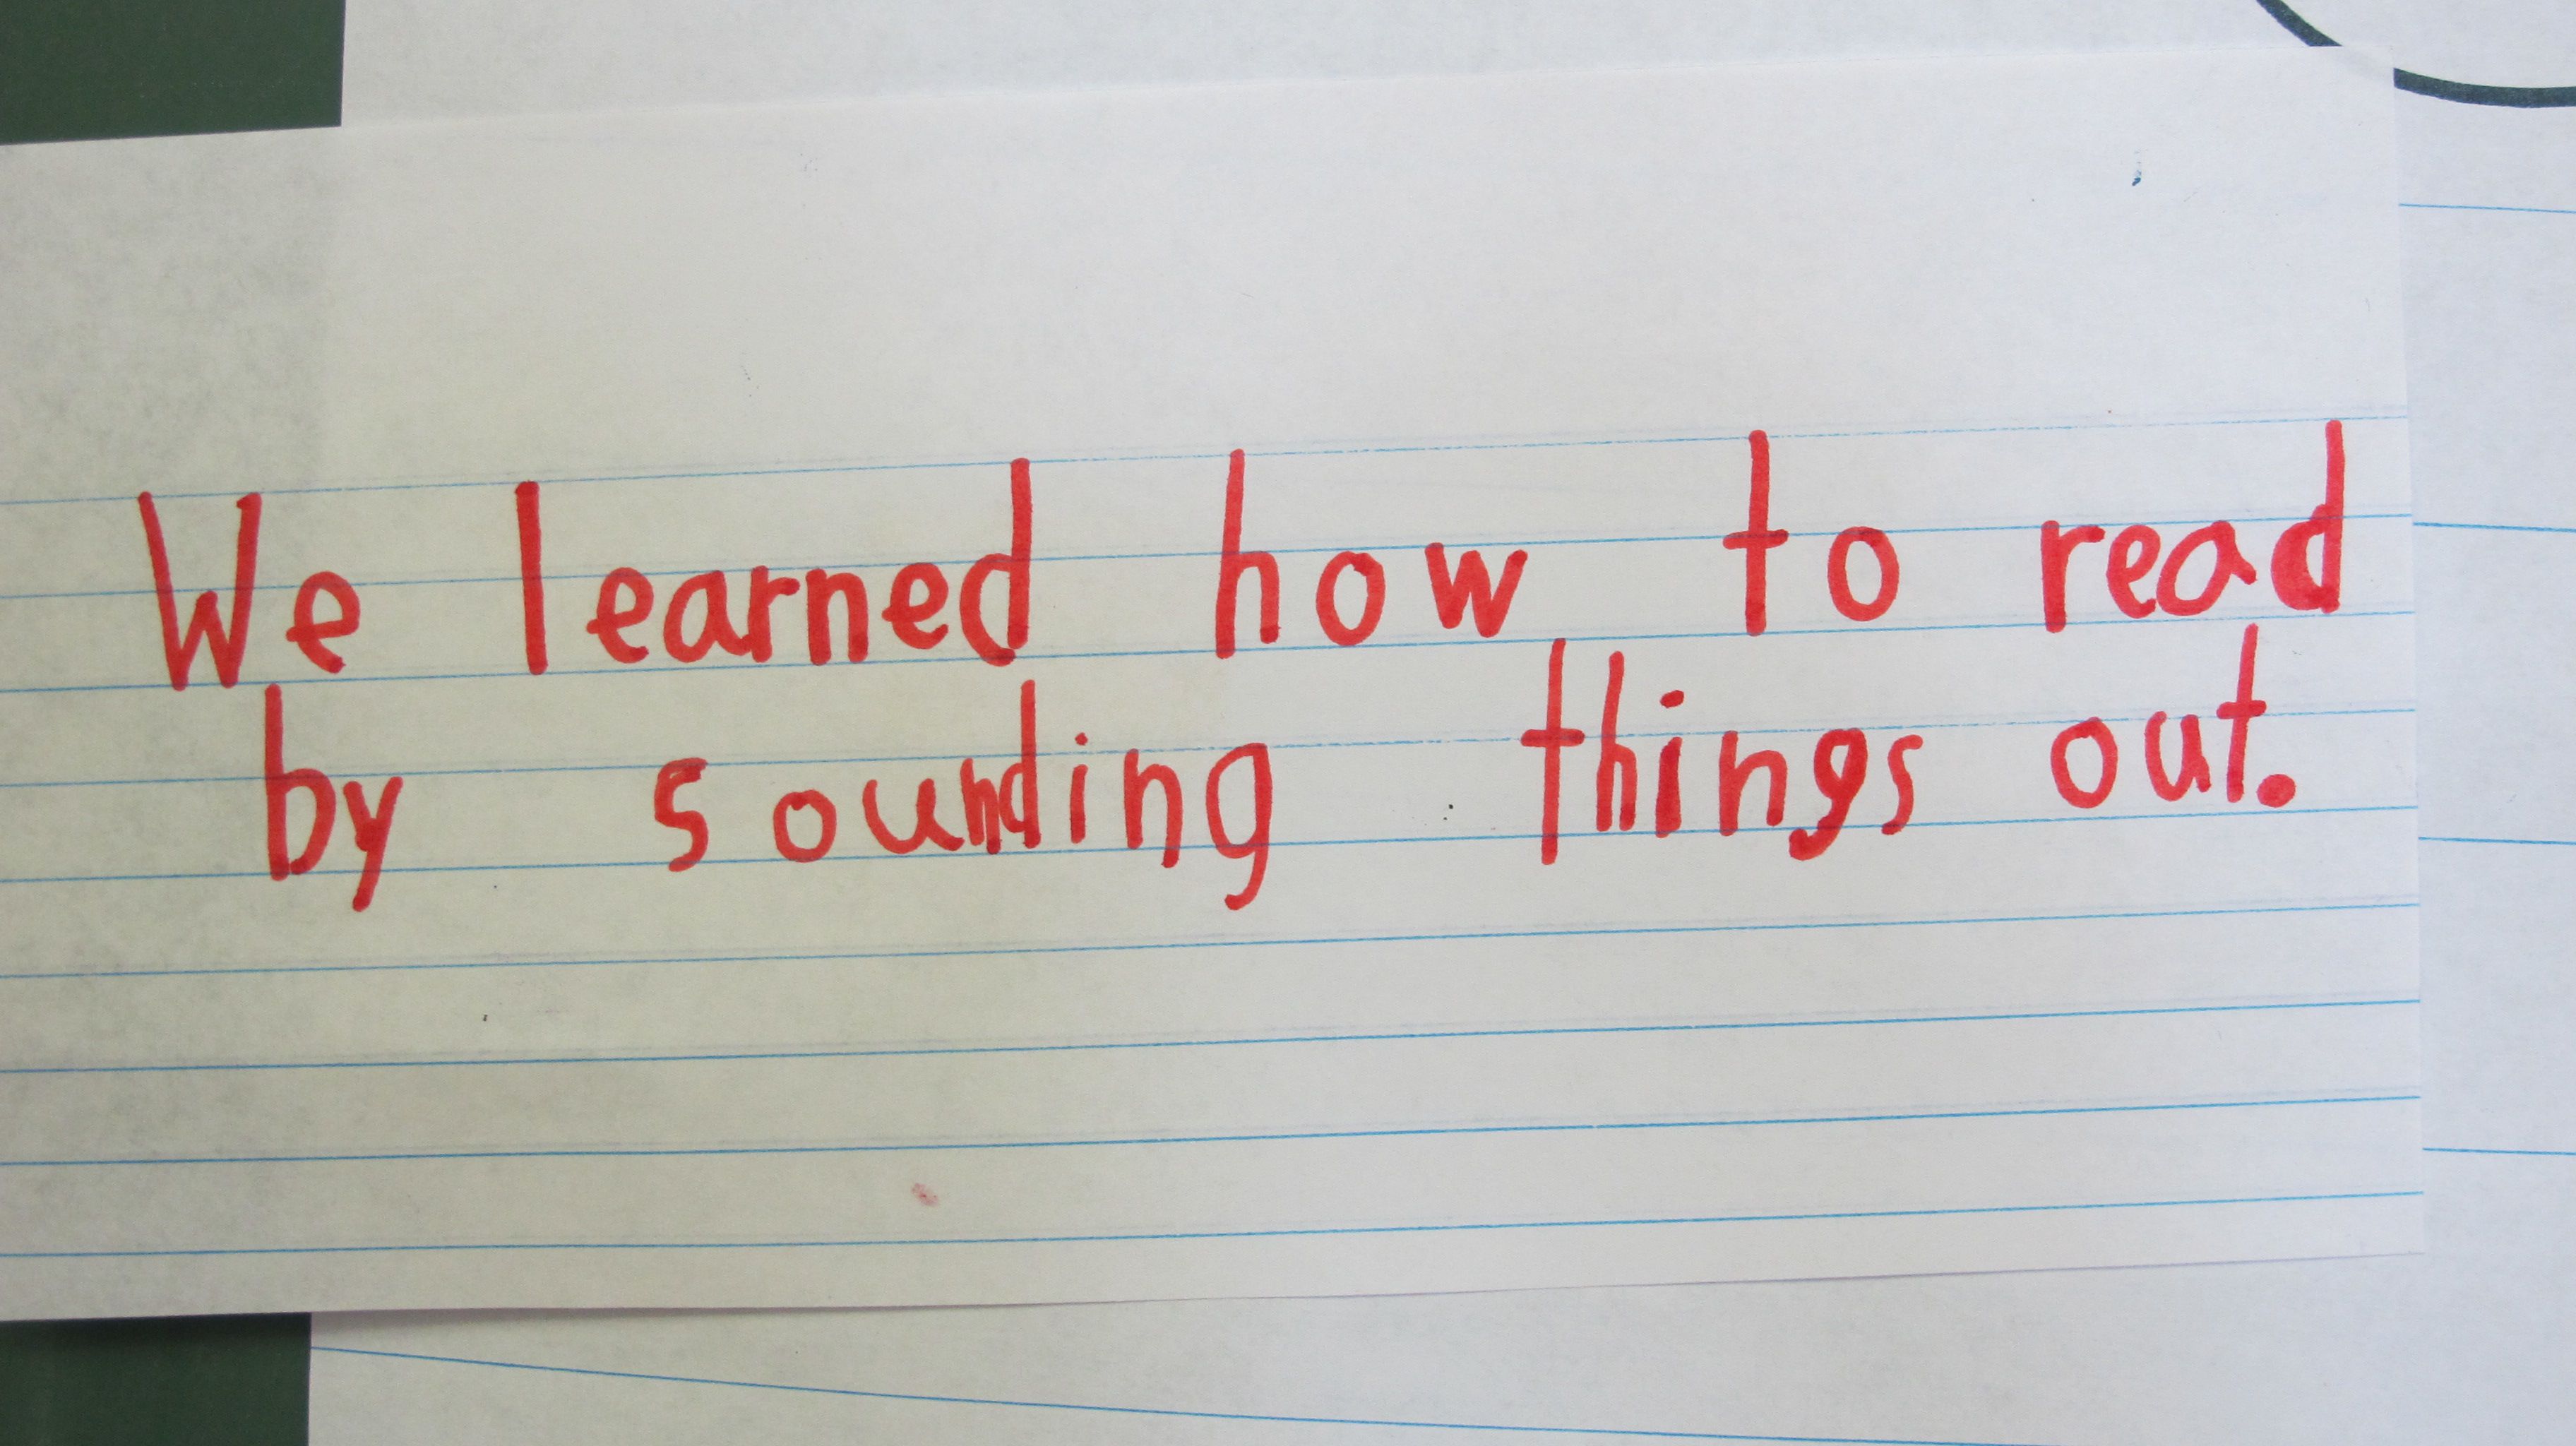 We learned how to read
by sounding things out.